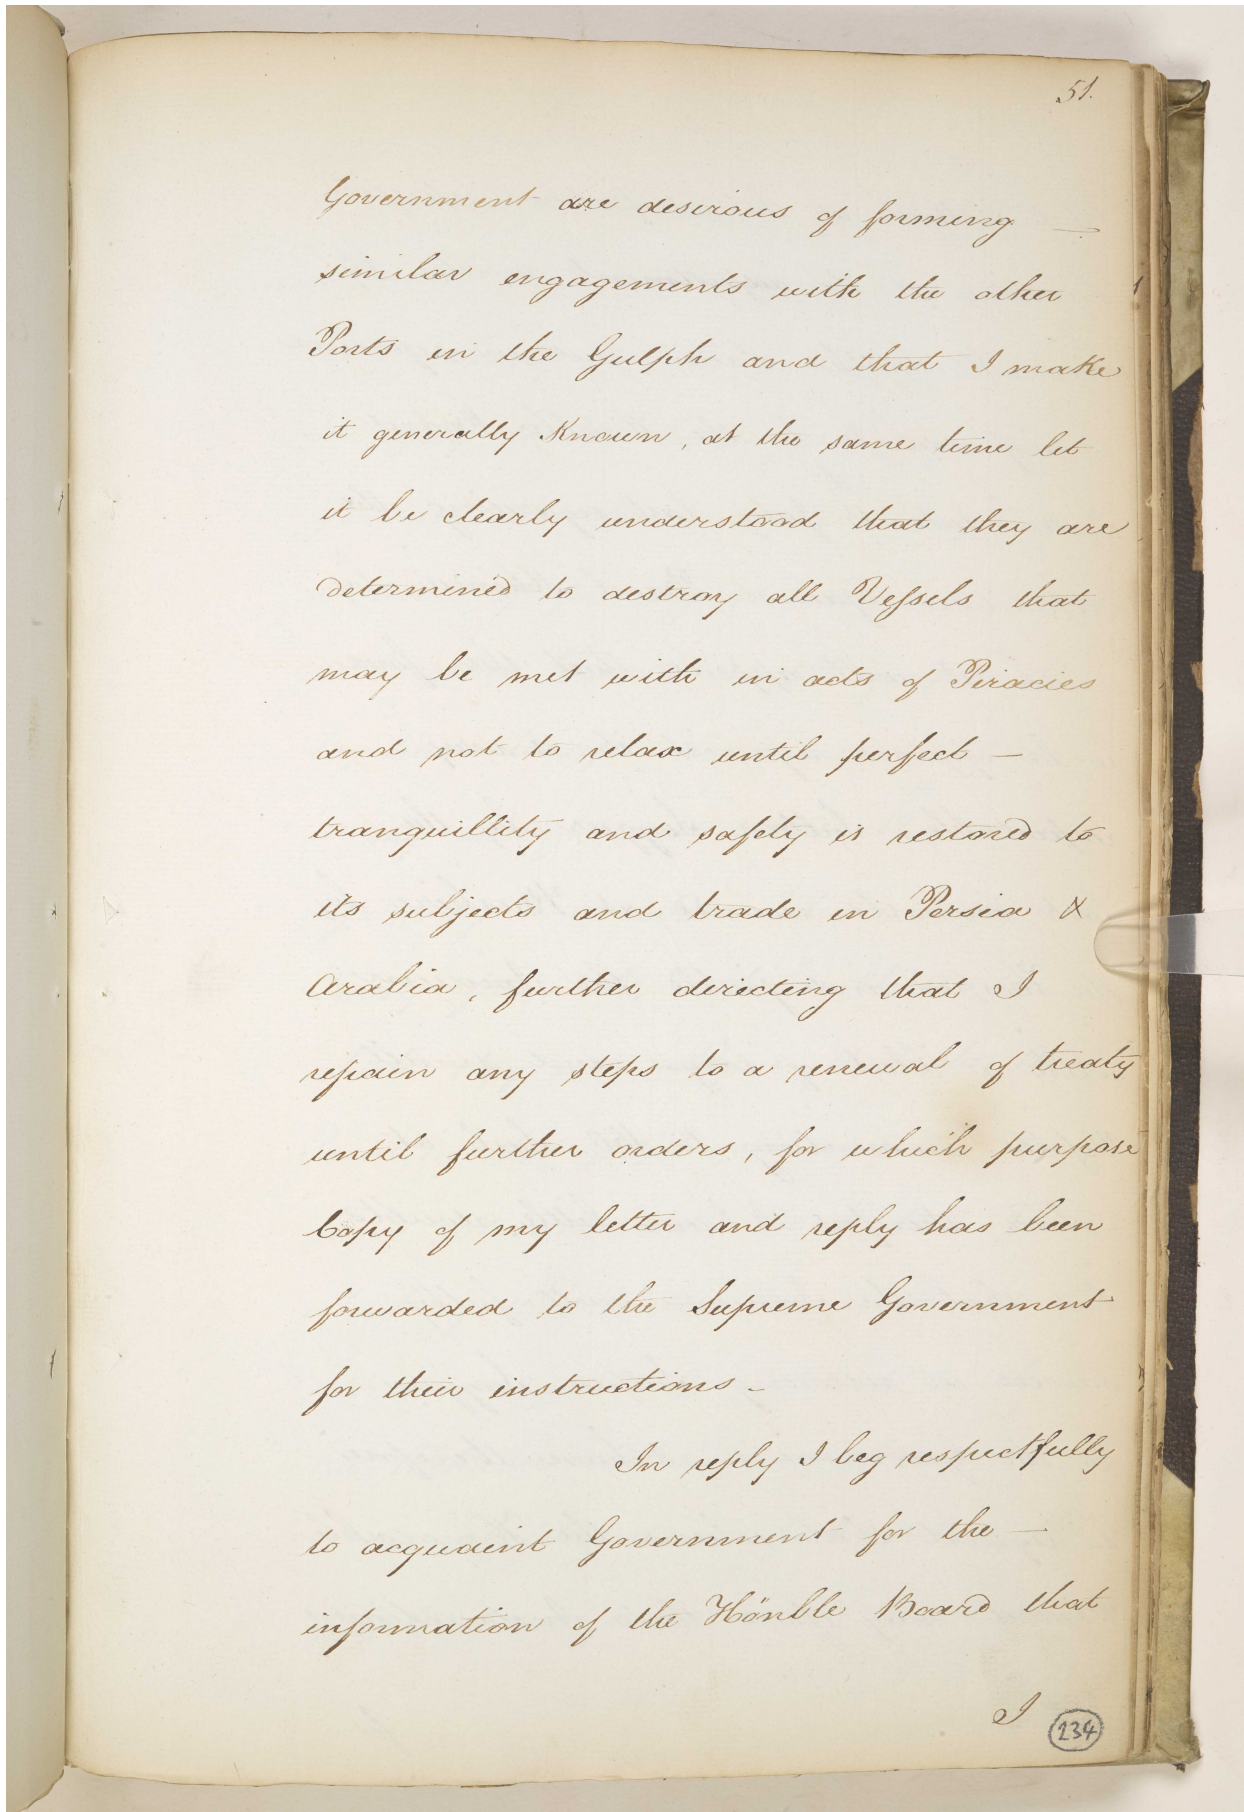 51.
Government are desirous of forming —
similar engagements with the other
Ports in the Gulph and that I make
it generally Known, at the same time let
it be clearly understood that they are
determined to destroy all Vessels that
may be met with in acts of Piracies
and not to relax until perfect —
tranquillity and safety is restored to
its subjects and trade in Persia &
Arabia, further directing that I
refrain any steps to a renewal of treaty
until further orders, for which purpose
Copy of my letter and reply has been
forwarded to the Supreme Government
for their instructions -
In reply I beg respectfully
to acquaint Government for the —
information of the Honble Board that
I
234